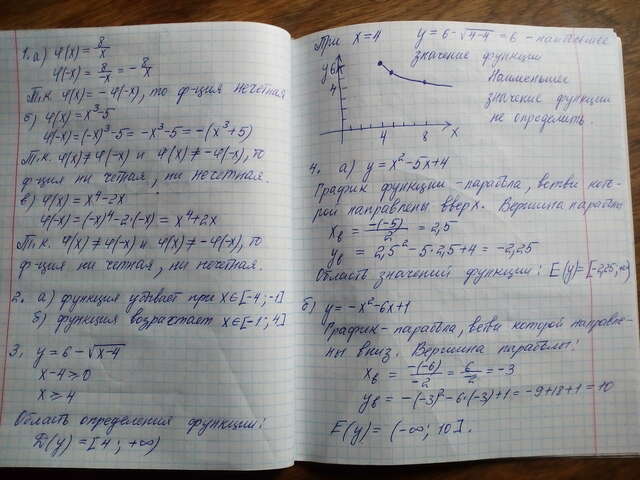 1. а) φ(x) = 8/x
φ(-x) = 8/-x = - 8/x
Т.к. φ(x) = - φ(-x), то ф-ция нечетная
б) φ(x) = x³-5
φ(-x) = (-x)³-5 = -x³-5 = -(x³+5)
Т.к. φ(x) ≠ φ(-x) и φ(x) ≠ -φ(-x), то
ф-ция ни четная, ни нечетная.
в) φ(x) = x⁴-2x
φ(-x) = (-x)⁴-2·(-x) = x⁴+2x
Т.к. φ(x) ≠ φ(-x) и φ(x) ≠ -φ(-x), то
ф-ция ни четная, ни нечетная.
2. а) функция убывает при x∈[-4; -1]
б) функция возрастает x∈[-1; 4]
3. y = 6 - √x-4
x-4 ≥ 0
x ≥ 4
Область определения функции:
D(y) = [4; +∞)
При x=4 y = 6 - √4-4 = 6 - наибольшее
значение функции
Наименьшее
значение функции
не определить.
y 6
4
4 8 x
4. а) y = x²-5x+4
График функции - парабола, ветви кото-
рой направлены вверх. Вершина параболы
xв = -(-5)/2 = 2,5
yв = 2,5²-5·2,5+4 = -2,25
Область значений функции: E(y)=[-2,25; +∞)
б) y = -x²-6x+1
График - парабола, ветви которой направле-
ны вниз. Вершина параболы:
xв = -(-6)/-2 = 6/-2 = -3
yв = -(-3)²-6·(-3)+1 = -9+18+1 = 10
E(y) = (-∞; 10].